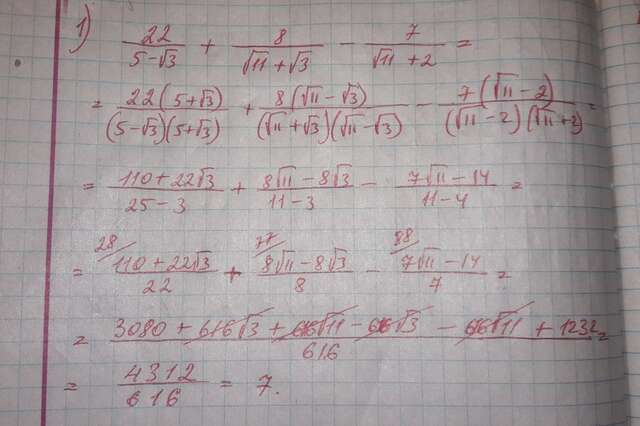 1) 22/(5-√3) + 8/(√11+√3) - 7/(√11+2) =
= 22(5+√3)/((5-√3)(5+√3)) + 8(√11-√3)/((√11+√3)(√11-√3)) - 7(√11-2)/((√11-2)(√11+2)) =
= (110+22√3)/(25-3) + (8√11-8√3)/(11-3) - (7√11-14)/(11-4) =
= 28/ (110+22√3)/22 + 77/ (8√11-8√3)/8 - 88/ (7√11-14)/7 =
= (3080+616√3+616√11-616√3-616√11+1232)/616 =
= 4312/616 = 7.